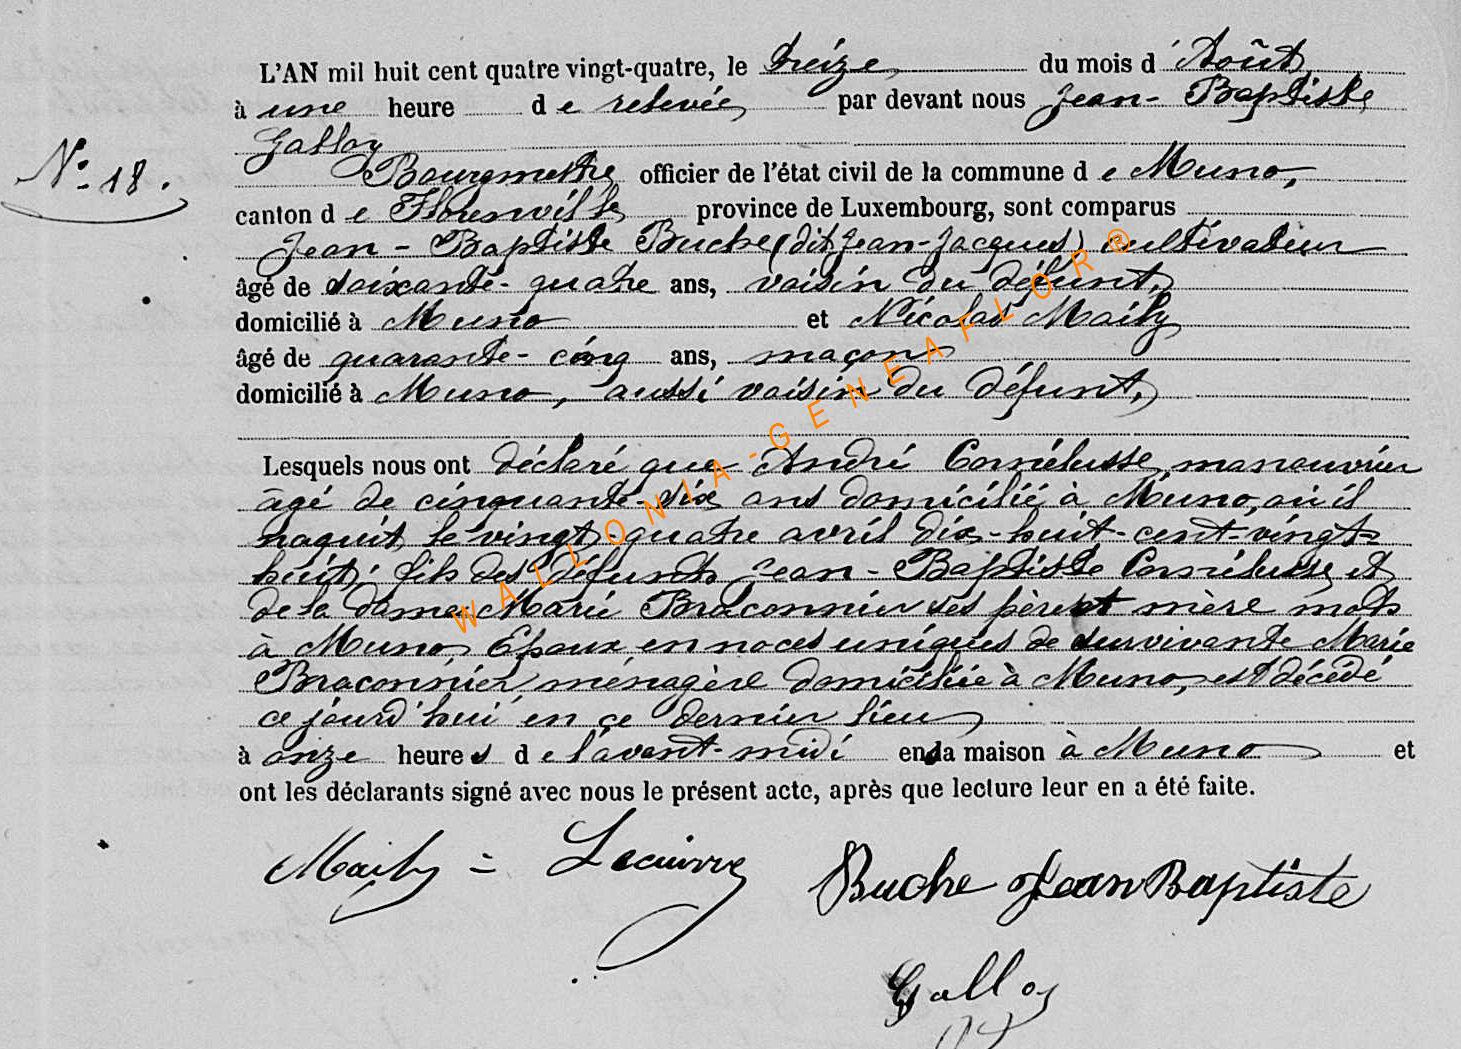 L'AN mil huit cent quatre vingt-quatre, le treize du mois d'Août
à une heure de relevée par devant nous Jean-Baptiste
Galloy
N° 18. Bourgmestre officier de l'état civil de la commune de Muno,
canton de Florenville province de Luxembourg, sont comparus
Jean-Baptiste Buche (dit Jean-Jacques) cultivateur
âgé de soixante-quatre ans, voisin du défunt,
domicilié à Muno et Nicolas Maily
âgé de quarante-cinq ans, maçon
domicilié à Muno, aussi voisin du défunt,
Lesquels nous ont déclaré que André Cornélusse, manouvrier
âgé de cinquante-six ans domicilié à Muno, où il
naquit le vingt-quatre avril dix-huit-cent-vingt-
huit, fils des défunts Jean-Baptiste Cornélusse, et
de la dame Marie Braconnier ses père et mère morts
à Muno, Epoux en noces uniques de survivante Marie
Braconnier, ménagère domiciliée à Muno, est décédé
ce jourd'hui en ce dernier lieu
à onze heures de l'avant-midi en sa maison à Muno et
ont les déclarants signé avec nous le présent acte, après que lecture leur en a été faite.
Maily = Lecuivre Buche Jean Baptiste
Galloy
WALLONIA-GENEAFLOR®